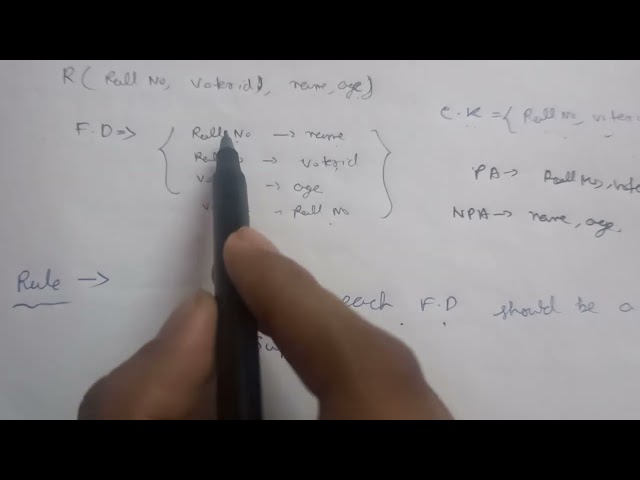 R( Roll No, voterid, name, age)
F.D => { Roll No → name
→ voterid
→ age
→ Roll No }
C.K = { Roll No, voterid
PA → Roll No,
NPA → name, age.
Rule → each F.D should be a